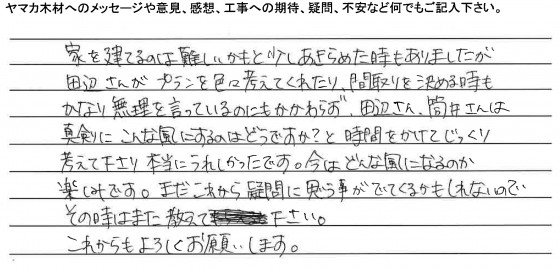 ヤマカ木材へのメッセージや意見、感想、工事への期待、疑問、不安など何でもご記入下さい。
家を建てるのは難しいかもと少しあきらめた時もありましたが
田辺さんがプランを色々考えてくれたり、間取りを決める時も
かなり無理を言っているのにもかかわらず、田辺さん、筒井さんは
真剣にこんな風にするのはどうですか?と時間をかけてじっくり
考えて下さり本当にうれしかったです。今はどんな風になるのか
楽しみです。まだこれから疑問に思う事がでてくるかもしれないので
その時はまた教えて下さい。
これからもよろしくお願いします。